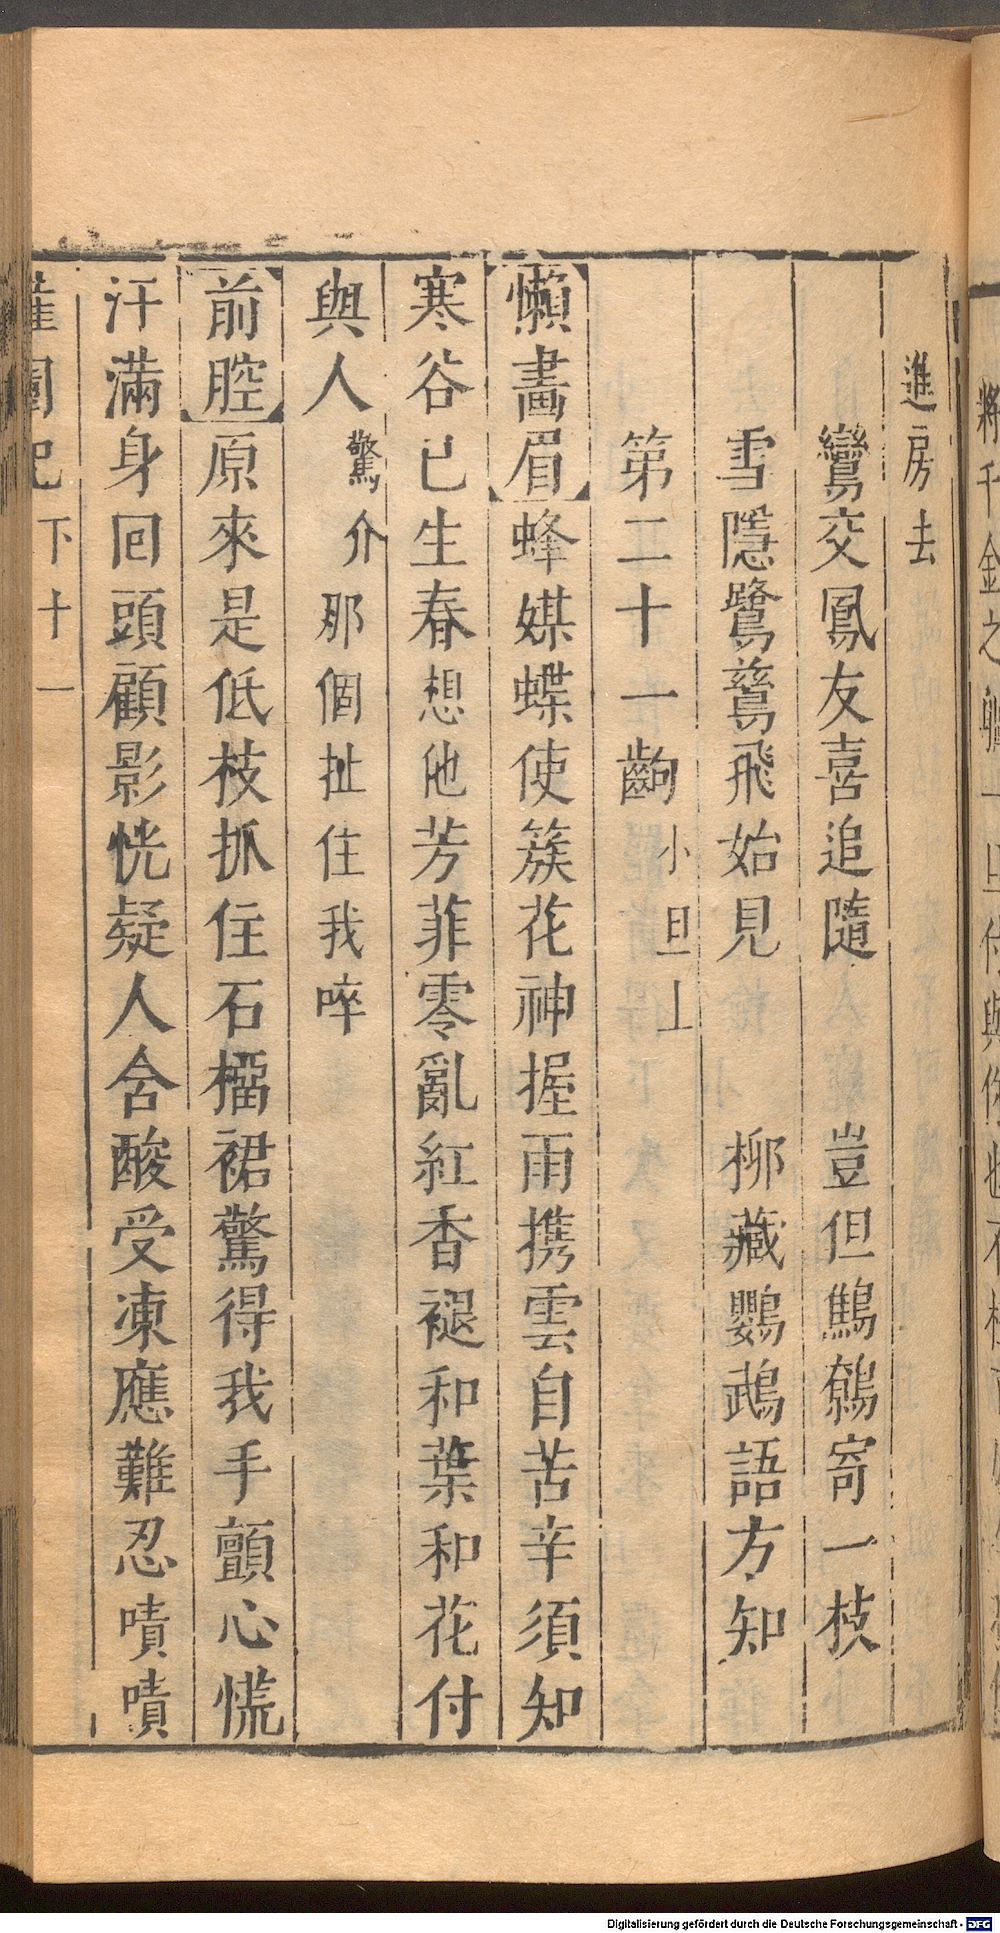 將千金之軀一旦付與你也不枉
進房去
鸞交鳳友喜追隨　豈但鷦鷯寄一枝
雪隱鷺鷥飛始見　柳藏鸚鵡語方知
第二十一齣　小旦上
懶畫眉　蜂媒蝶使簇花神握雨携雲自苦辛須知
寒谷已生春想他芳菲零亂紅香褪和葉和花付
與人　驚介　那個扯住我啐
前腔　原來是低枝抓住石榴裙驚得我手顫心慌
汗滿身回頭顧影恍疑人含酸受凍應難忍嘖嘖
下十一
Digitalisierung gefördert durch die Deutsche Forschungsgemeinschaft - DFG